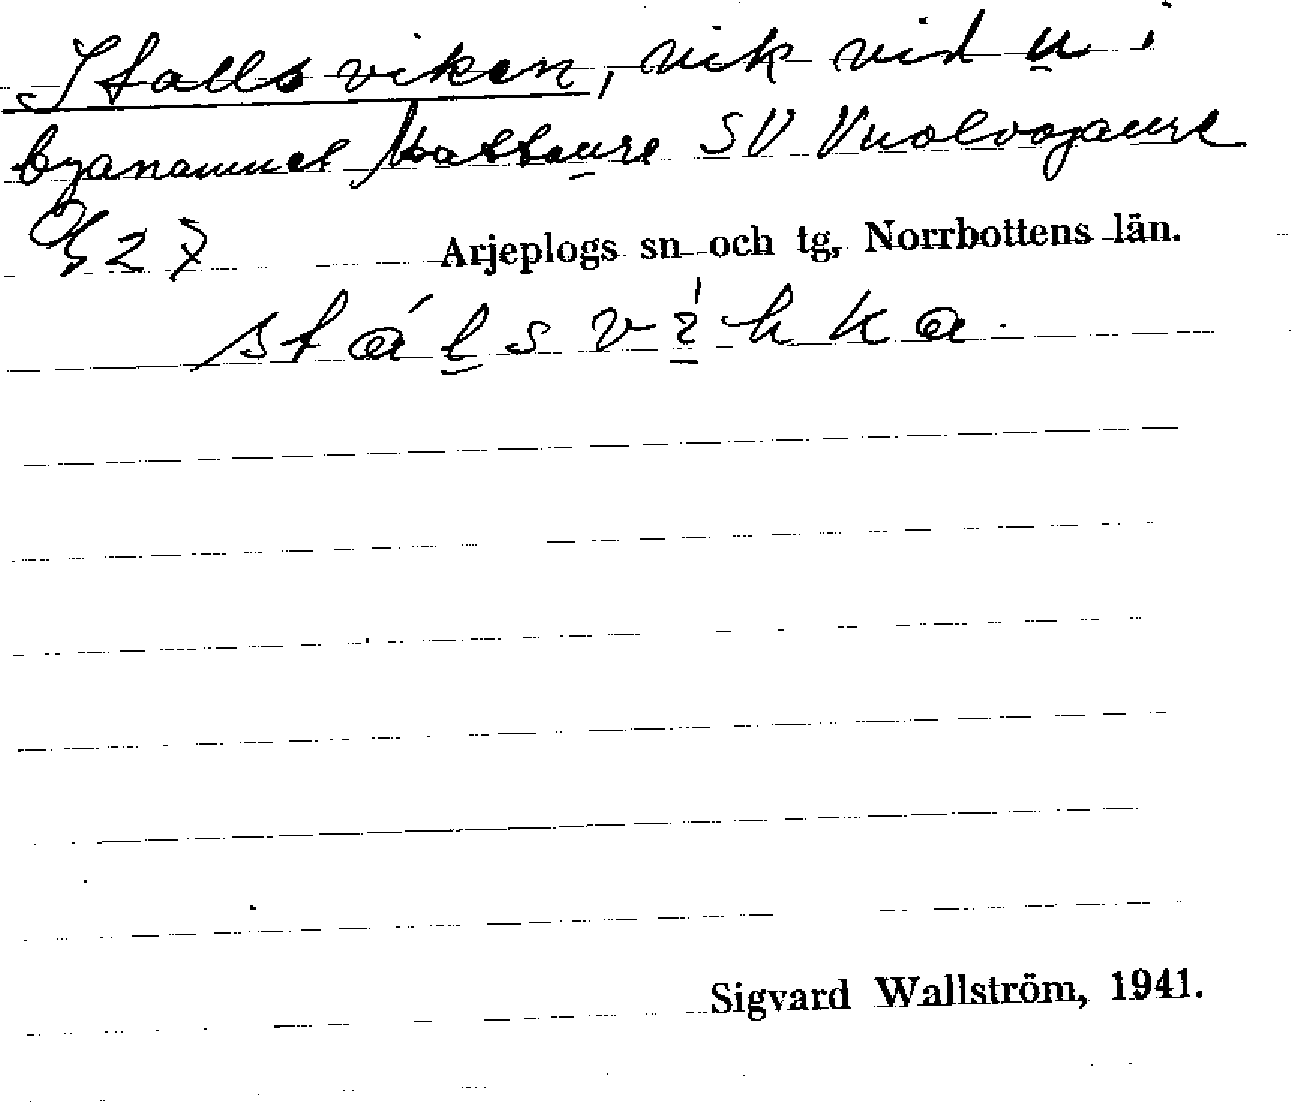 Stallsviken, vik vid u i
byanamnet Kattaure SV Vuolvojaure
G 27 Arjeplogs sn och tg, Norrbottens län.
stálsvìhka.
Sigvard Wallström, 1941.